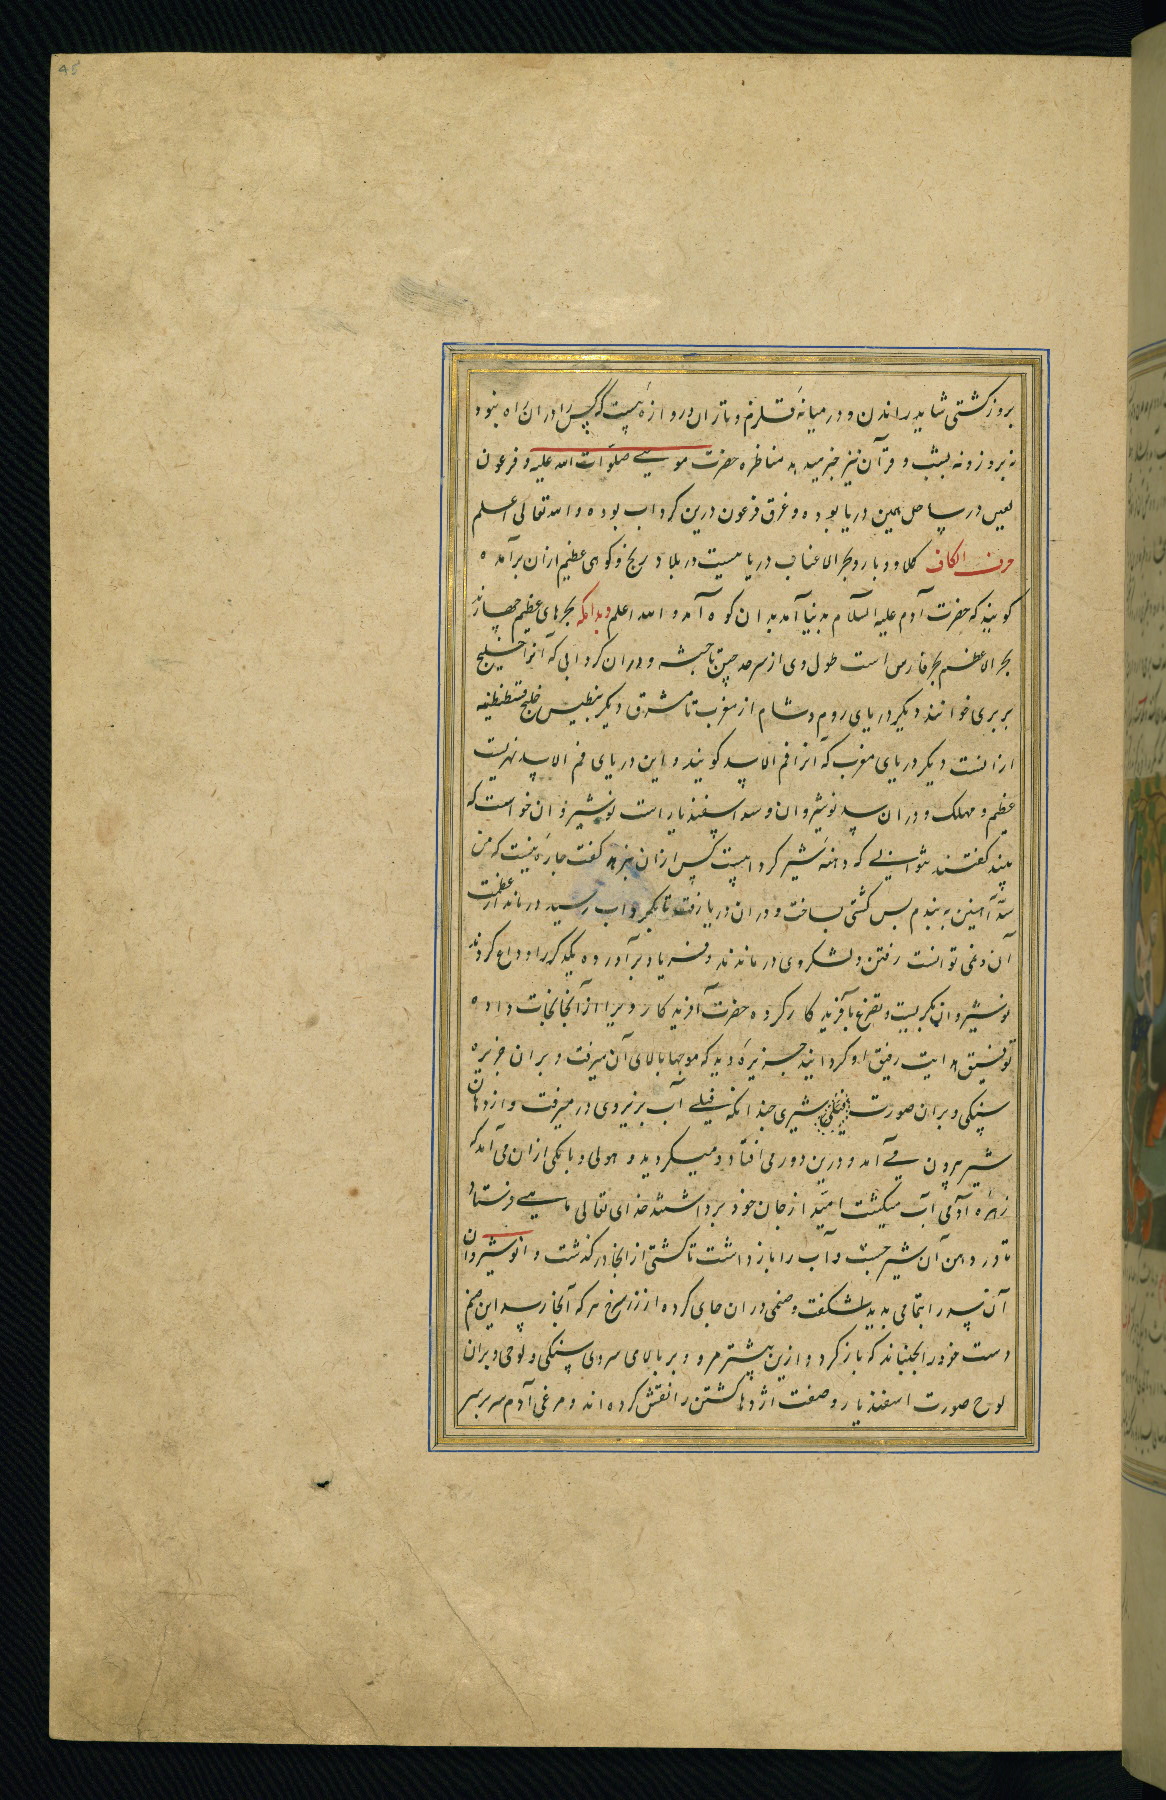 45
بروز کشتی شاید راندن و در میانهٔ قلزم و تاران دروازهٔ هست که کس را در ان راه نبود
نه بروز و نه بشب و قرآن نیز خبر میدهد مناظره حضرت موسی صلوات الله علیه و فرعون
لعین در ساحل همین دریا بوده و غرق فرعون درین کرداب بوده والله تعالی اعلم
حرف الکاف کلاو و بارد بحر الاعناب دریاییست در بلاد زنج و کوهی عظیم ازان برآمده
کویند که حضرت آدم علیه السلام بدنیا آمد بدان کوه آمد والله اعلم و بدانکه بحرهای عظیم چهارند
بحر الاعظم بحر فارس است طول وی از سرحد چین تا حبشه و دران کردابی که آنرا خلیج
بربری خوانند دیکر دریای روم و شام از مغرب تا مشرق دیکر بنطیس خلیج قسطنطنیه
ازانست دیکر دریای مغرب که آنرا فم الاسد کویند و این دریای فم الاسد نهریست
عظیم و مهلک و دران سد نوشیروان و سد اسفندیار است نوشیروان خواست که
ببیند کفتند نتوانی که دهنهٔ شیر کردابیست کس ازان نرهد کفت چارهٔ نیست که من
سد آهنین به بندم پس کشتی بساخت و دران دریا رفت تا بکرداب رسید درماند از عظمت
آن و نمی توانست رفتن و لشکر وی درماندند و فریاد برآوردند و یکدیکر را وداع کردند
نوشیروان بکریست و تضرع بآفریدکار کرده حضرت آفریدکار ویرا از آنجا نجات داده
توفیق هدایت رفیق او کردانید جزیرهٔ دید که موجها بالای آن میرفت و بران جزیره
سنکی و بران صورت شیری چندانکه فیلی آب بزیر وی درمیرفت و از دهان
شیر بیرون می آمد و درین دور می افتاد و میکردید و هولی و بانکی ازان می آمد که
زهرهٔ آدمی آب میکشت امید از جان خود برداشتند خدای تعالی ماهیی فرستاد
تا در دهن آن شیر جست و آب را باز داشت تا کشتی از انجا درکذشت و انوشیروان
آن سد را بتمامی بدید بشکفت و صنمی دران جای کرده از زر سرخ هر که آنجا رسد این صنم
دست خود را بجنباند که باز کرد و ازین پیشتر مرو و بر بالای سر وی سنکی و لوحی و بران
لوح صورت اسفندیار و صفت اژدها کشتن را نقش کرده اند و مرغی آدم سر بر سر